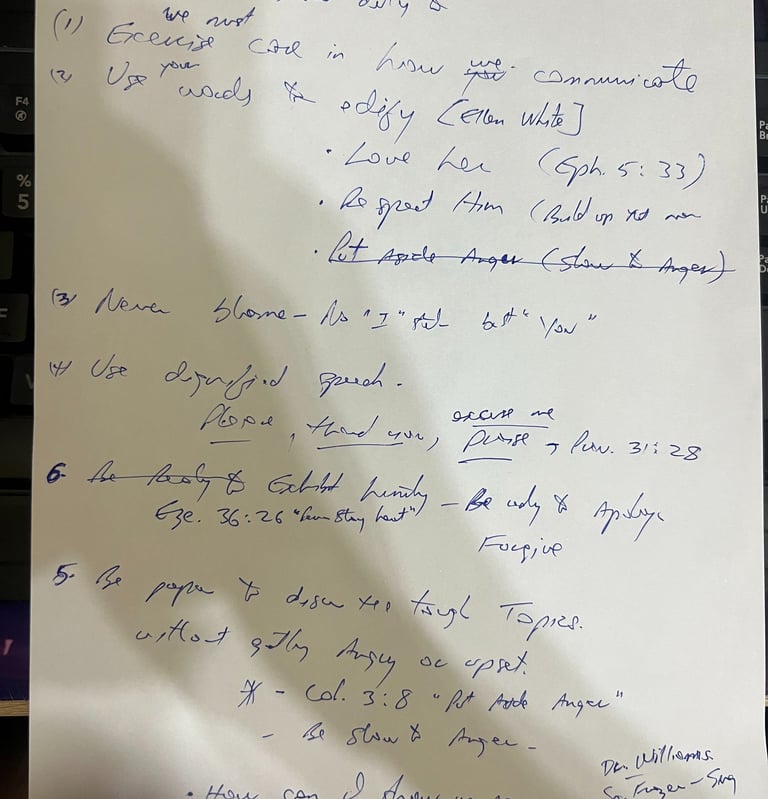 we must
(1) Exercise care in how we you communicate
(2) Use your words to edify [Ellen White]
• Love her (Eph. 5:33)
• Respect Him (Build up not
• Put Aside Anger (Slow to Anger)
(3) Never blame – No "I" but "You"
(4) Use dignified speech.
excuse me
Please, thank you, praise → Prov. 31:28
6. Be Ready to Exhibit humility – Be ready to Apologize
Eze. 36:26 "Stony heart") Forgive
5. Be prepared to discuss tough Topics.
without getting Angry or upset.
* – Col. 3:8 "Put Aside Anger"
– Be Slow to Anger –
Dr. Williams.
• How can I